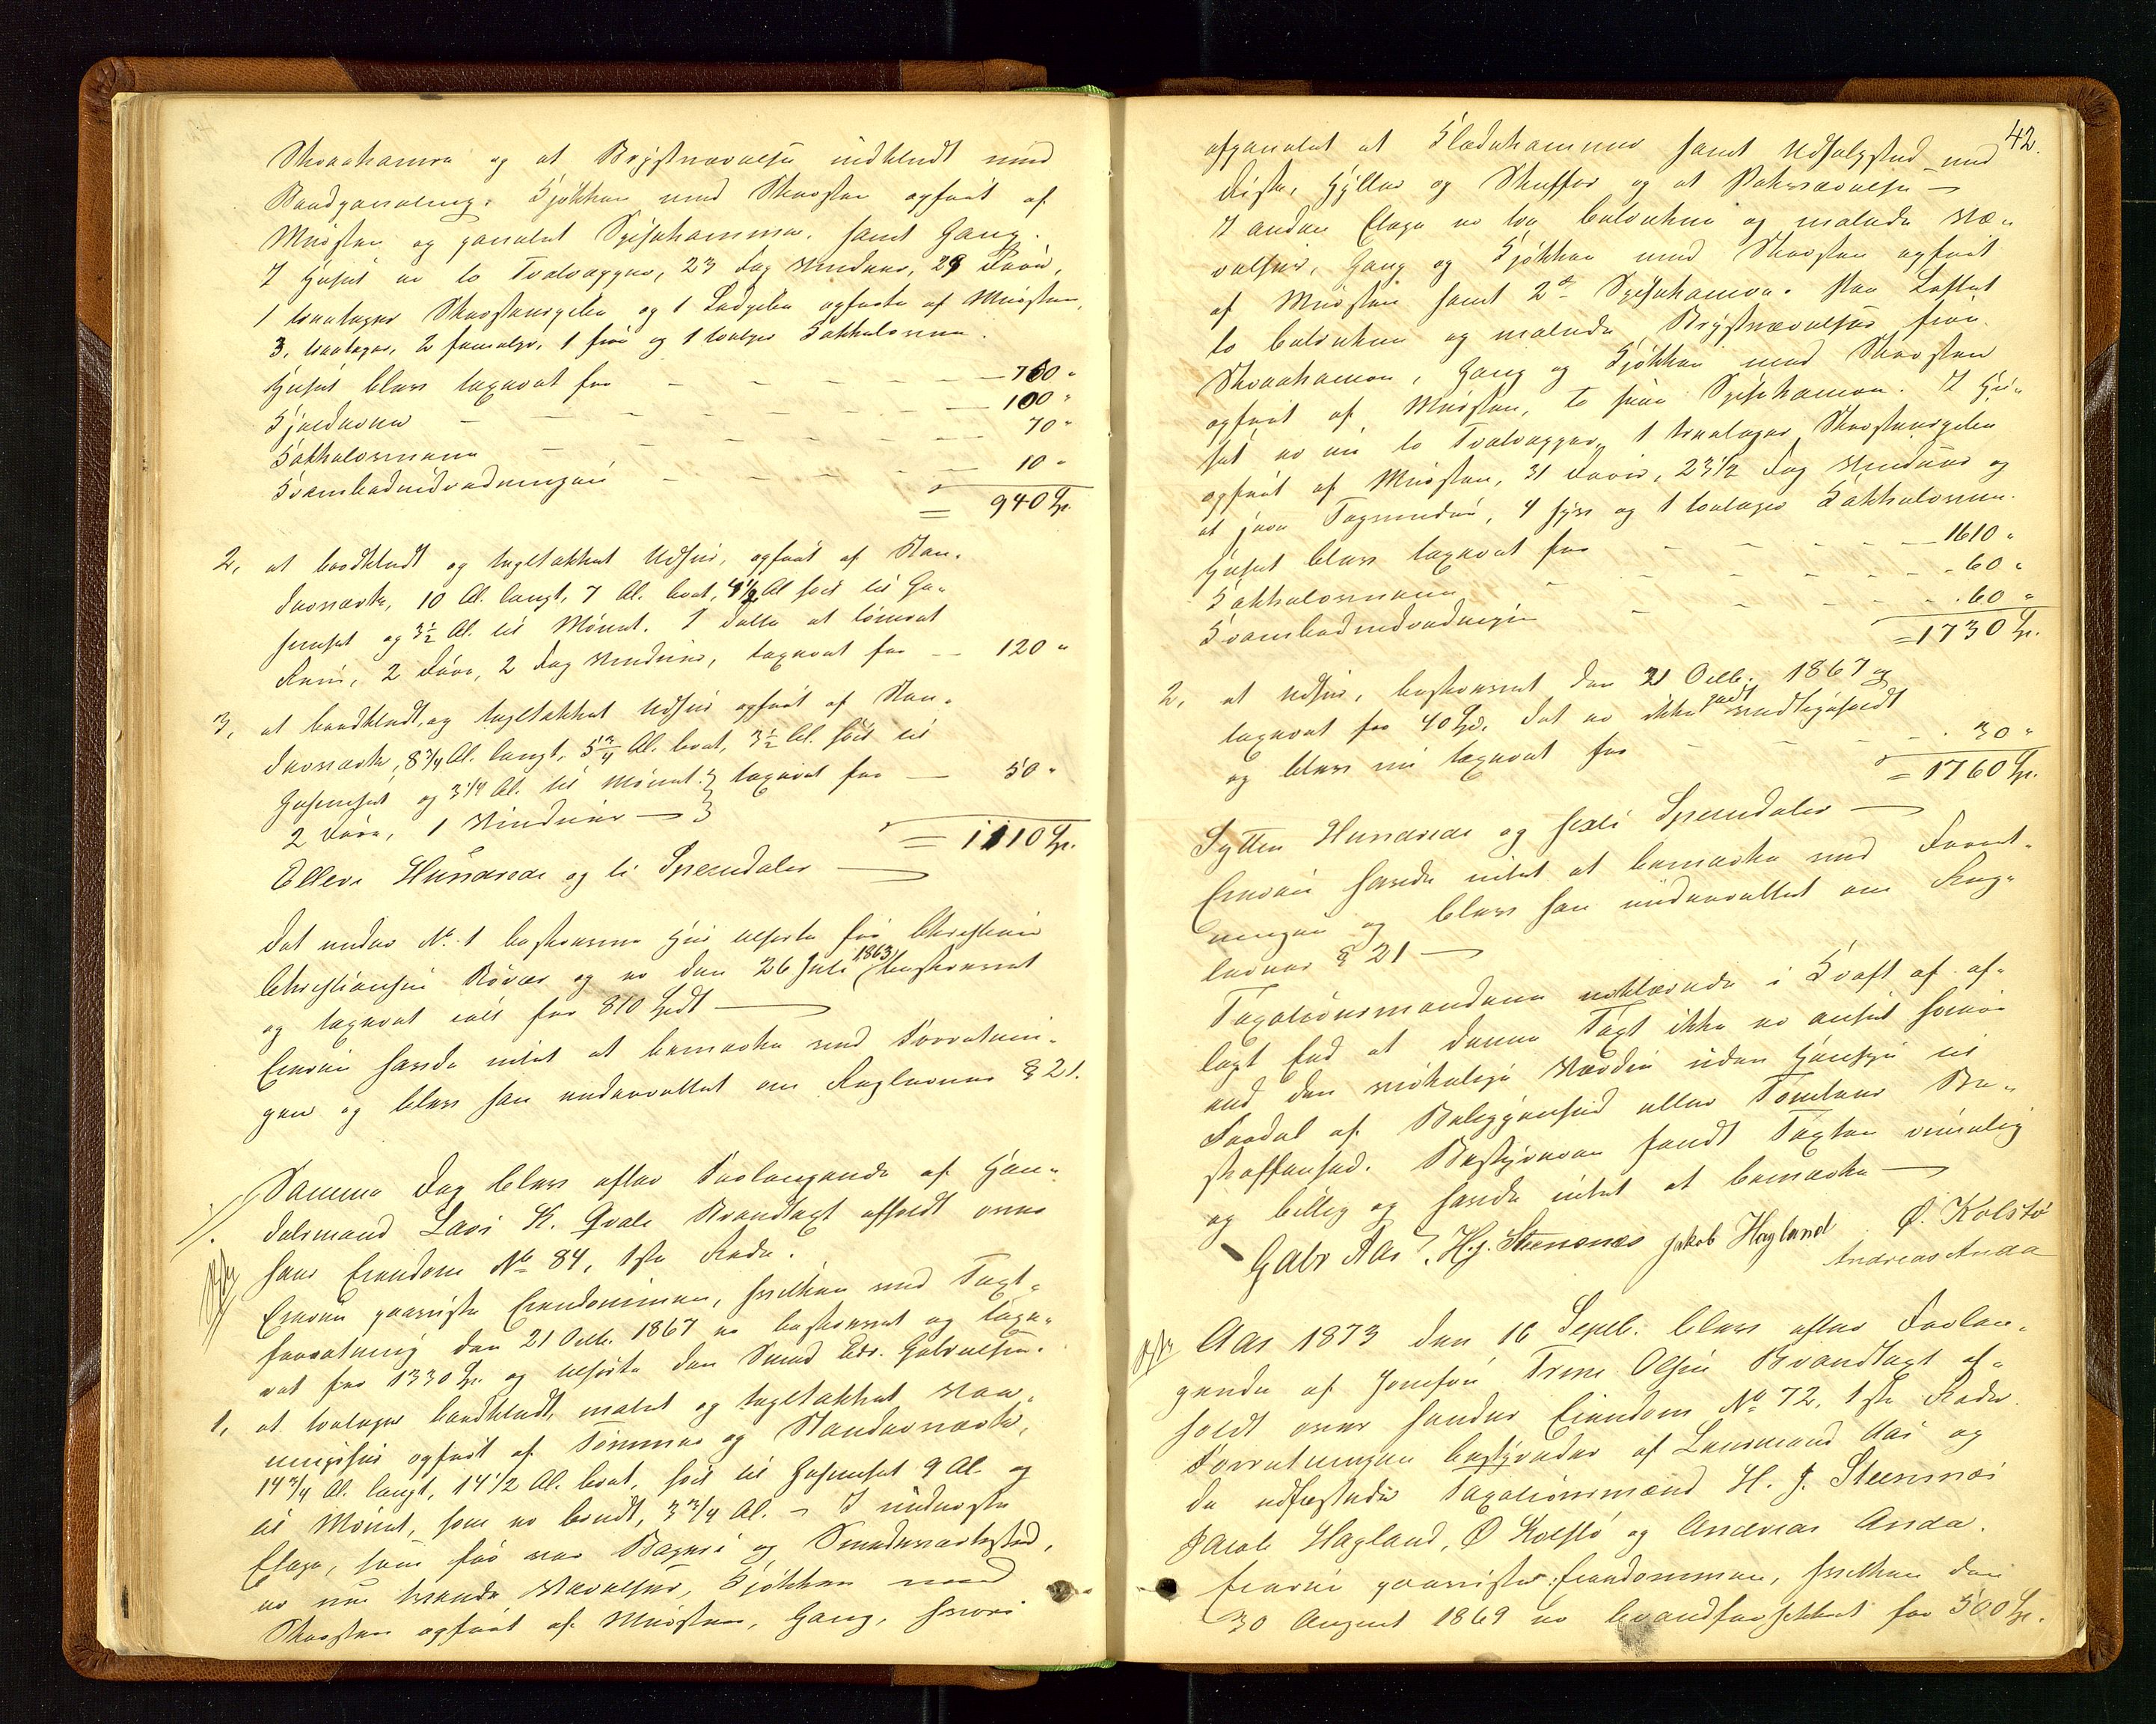 Skraakamra og et Brystværelse indkledt med
Bordpaneling. Kjøkken med Skorsten opført af
Mursten og panelet Spisekammer. samt Gang.
I Huset er to Tvervægger, 23 Fag Vinduer, 29 Døre,
1 treetages Skorstenspibe og 1 Ladpibe opførte af Mursten,
3, treetages, 2 1 og 1 toetages Kakkelovne.
Huset blev taxeret for 760 "
Kjelderen 100 "
Kakkelovnene 70 "
Brandredningen 10 "
= 940 Sp.
2, et bordkledt og tegltækket Udhus, opført af Stan-
derverk, 10 Al. langt, 7 Al. bret, 4 1/2 Al høit til Ge-
simset og 3 1/2 Al. til Mønet. I dette et tømret
Rum, 2 Døre, 2 Fag Vinduer, taxeret for 120 "
3, et bordkledt, og tegltækket Udhus opført af Stan-
derverk, 8 3/4 Al. langt, 5 3/4 Al. bret, 3 1/2 Al. høit til
Gesimset og 3 1/4 Al. til Mønet. taxeret for 50 "
2 Døre, 1 Vindue
= 1110 Sp.
Elleve Hundrede og ti Speciedaler
Det under No. 1 beskrevne Hus tilhørte før Christian
Christiansen Røver og er den 26 Juli 1863 beskrevet
og taxeret til for 810 Spdl
Eieren havde intet at bemærke ved Forretnin-
gen og blev han underrettet om Reglerne § 21.
Samme Dag blev efter Forlangende af Han-
delsmand Lars K. Qvale Brandtaxt afholdt over
hans Eiendom No 84, 1ste Rode.
Eieren paaviste Eiendommen, hvilken ved Taxt-
forretning den 21 Octb. 1867 er beskrevet og taxe-
ret for 1330 Sp. og tilhørte den Smed Edv. Gabrielsen.
1, et toetages bordkledt, malet og tegltækket Vaa-
ningshus opført af Tømmer og Standerverk,
14 3/4 Al. langt, 14 1/2 Al. bret, høit til Gesimset 9 Al. og
til Mønet, som er brudt, 3 3/4 Al. – I underste
Etage, som før var Bageri og Smedeverksted,
er nu trende Værelser, Kjøkken med
Skorsten opført af Mursten, Gang, hvori
42.
afpanelet et Klædekammer samt Udsalgsted med
Diske, Hylder og Skuffer og et Pakværelse –
I anden Etage er tre betrukne og malede Væ-
relser, Gang og Kjøkken med Skorsten opført
af Mursten samt 2de Spisekamre. Paa Loftet
to betrukne og malede Brystværelser fire
Skraakamre, Gang og Kjøkken med Skorsten
opført af Mursten, to smaa Spisekamre. I Hu-
set er nu to Tvervægger, 1 treetages Skorstenspibe
opført af Mursten, 31 Døre, 23 1/2 Fag Vinduer og
et jern Tagvindue, 4 og 1 toetages Kakkelovne.
Huset blev taxeret for 1610 "
Kakkelovnene 60 "
Brandredningen 60 "
= 1730 Sp.
2, et Udhus, beskrevet den 21 Octb. 1867 og
taxeret for 40 Spd. Det er ikke godt vedligeholdt
og blev nu taxeret for 30 "
= 1760 Sp.
Sytten Hundrede og sexti Speciedaler
Eieren havde intet at bemærke ved Forret-
ningen og blev han underrettet om Reg-
lernes § 21
Taxationsmændene erklærede i Kraft af af-
lagt Eed at denne Taxt ikke er ansat høiere
end den virkelige Værdie uden Hensyn til
Fordel af Beliggenhed eller Tomtens Be-
skaffenhed. Bestyreren fandt Taxten rimelig
og billig og havde intet at bemærke
Gabr Aas H. J. Steensnæs Jakob Hagland Ø. Kolstø
Andreas Anda
Aar 1873 den 16 Septb. blev efter Forlan-
gende af Jomfru Trine Olsen Brandtaxt af-
holdt over hendes Eiendom No 72, 1ste Rode.
Forretningen bestyredes af Lensmand Aas og
de udsættede Taxationsmænd H. J. Steensnæs
Jacob Hagland, Ø Kolstø og Andreas Anda.
Eieren paaviste Eiendommen, hvilken den
30 August 1869 er brandforsikkret for 500 Sp.